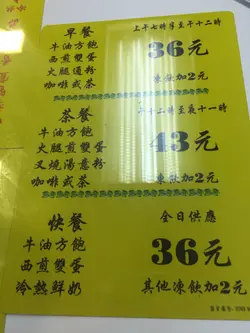 早餐
上午七時半至午十二時
牛油方飽
西煎雙蛋
火腿通粉
咖啡或茶
36元
凍飲加2元
茶餐
午十二時至夜十一時
牛油方飽
西煎雙蛋
叉燒湯意粉
咖啡或茶
43元
凍飲加2元
快餐
全日供應
牛油方飽
西煎雙蛋
冷熱鮮奶
36元
其他凍飲加2元